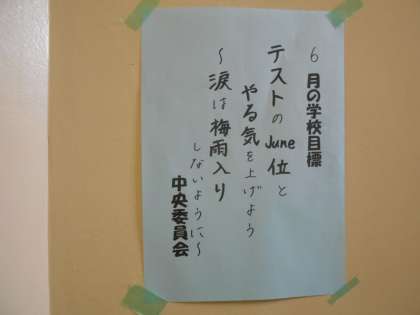 6月の学校目標
テストのJune位と
やる気を上げよう
～涙は梅雨入り
しないように～
中央委員会